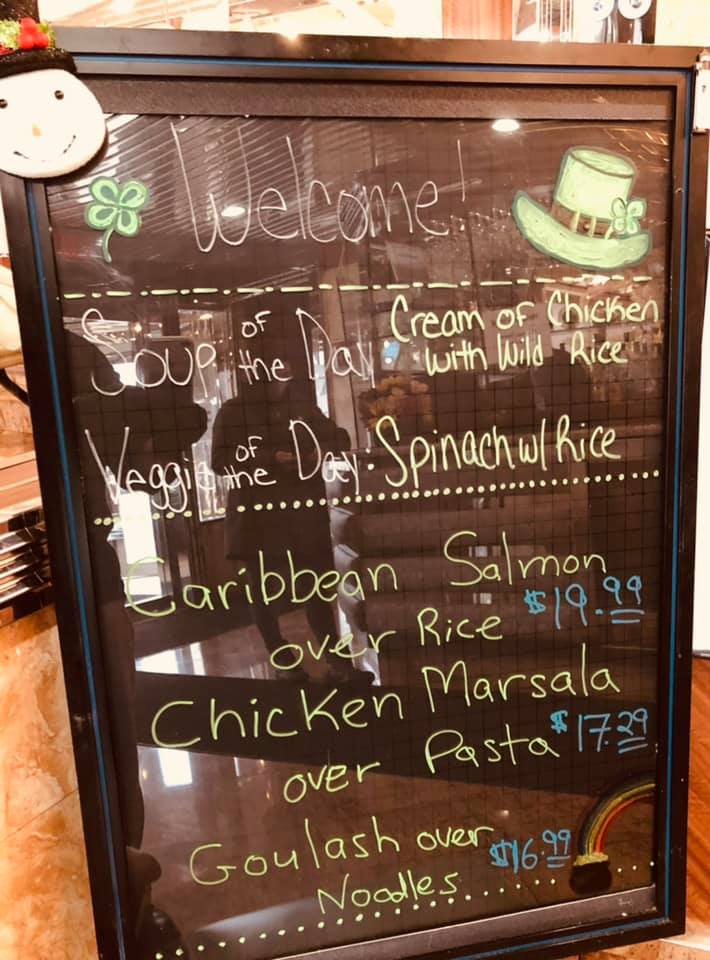 Welcome!
Soup of the Day Cream of Chicken
with Wild Rice
Veggie of the Day. Spinach w/ Rice
Caribbean Salmon
over Rice $19.99
Chicken Marsala
over Pasta $17.29
Goulash over $16.99
Noodles